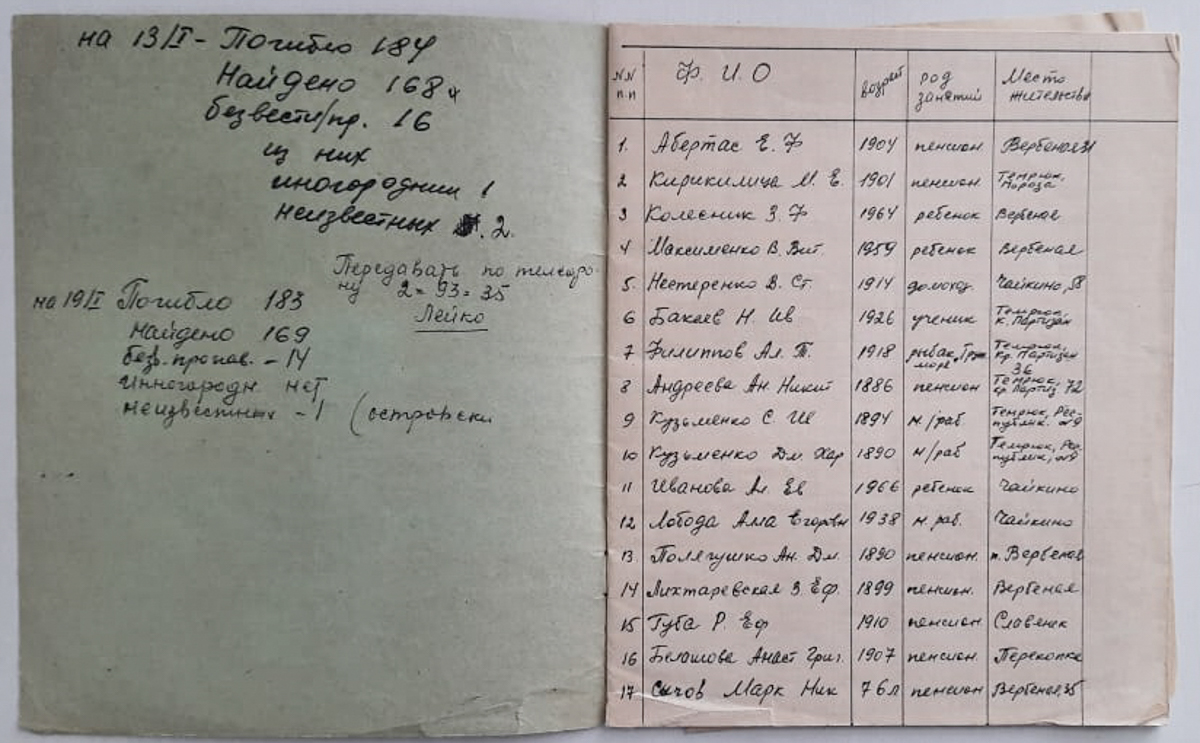 на 13/I - Погибло 184
Найдено 168 ч
безвести/пр. 16
из них
иногородних 1
неизвестных 2.
Передавать по телефо-
ну 2=93=35
Лейко
на 19/I Погибло 183
найдено 169
без. пропав. - 14
инногородн. нет
неизвестных - 1 (островски
N.N п.п Ф. И. О возраст род занятий Место жительства
1. Абертас Е. Ф 1904 пенсион. Вербеная 31
2 Кирикилица М. Е. 1901 пенсион. Темрюк, Мороза
3 Колесник З. Ф 1964 ребенок Вербеная
4 Максименко В. Вит 1959 ребенок Вербеная
5. Нестеренко В. Ст. 1914 домохоз. Чайкино, 58
6 Бакаев Н. Ив 1926 ученик Темрюк, к. Партизан
7 Филиппов Ал. Т. 1918 рыбак, море Темрюк, кр. Партизан 36
8 Андреева Ан. Никит 1886 пенсион Темрюк, кр. Партиз 72
9 Кузьменко С. Ш 1894 н./раб. Темрюк, Рес-публик. 29
10 Кузьменко Дм. Хар 1890 н/раб Темрюк, Рес-публик, 29
11 Иванова Ал. Ев 1966 ребенок Чайкино
12 Лобода Ама Егоровн 1938 н. раб. Чайкино
13. Полягушко Ан. Дм. 1890 пенсион. п. Вербеная
14 Лихтаревская З. Еф. 1899 пенсион. Вербеная
15 Губа Р. Еф 1910 пенсион. Славянск
16 Белашова Анаст Григ. 1907 пенсион. Перекопка
17 Сычов Марк Ник 76л пенсион Вербеная, 35